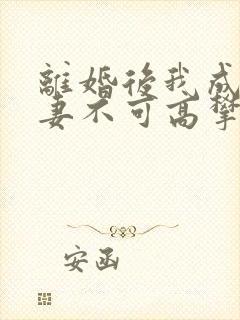 離婚後我成
妻不可高攀
安函